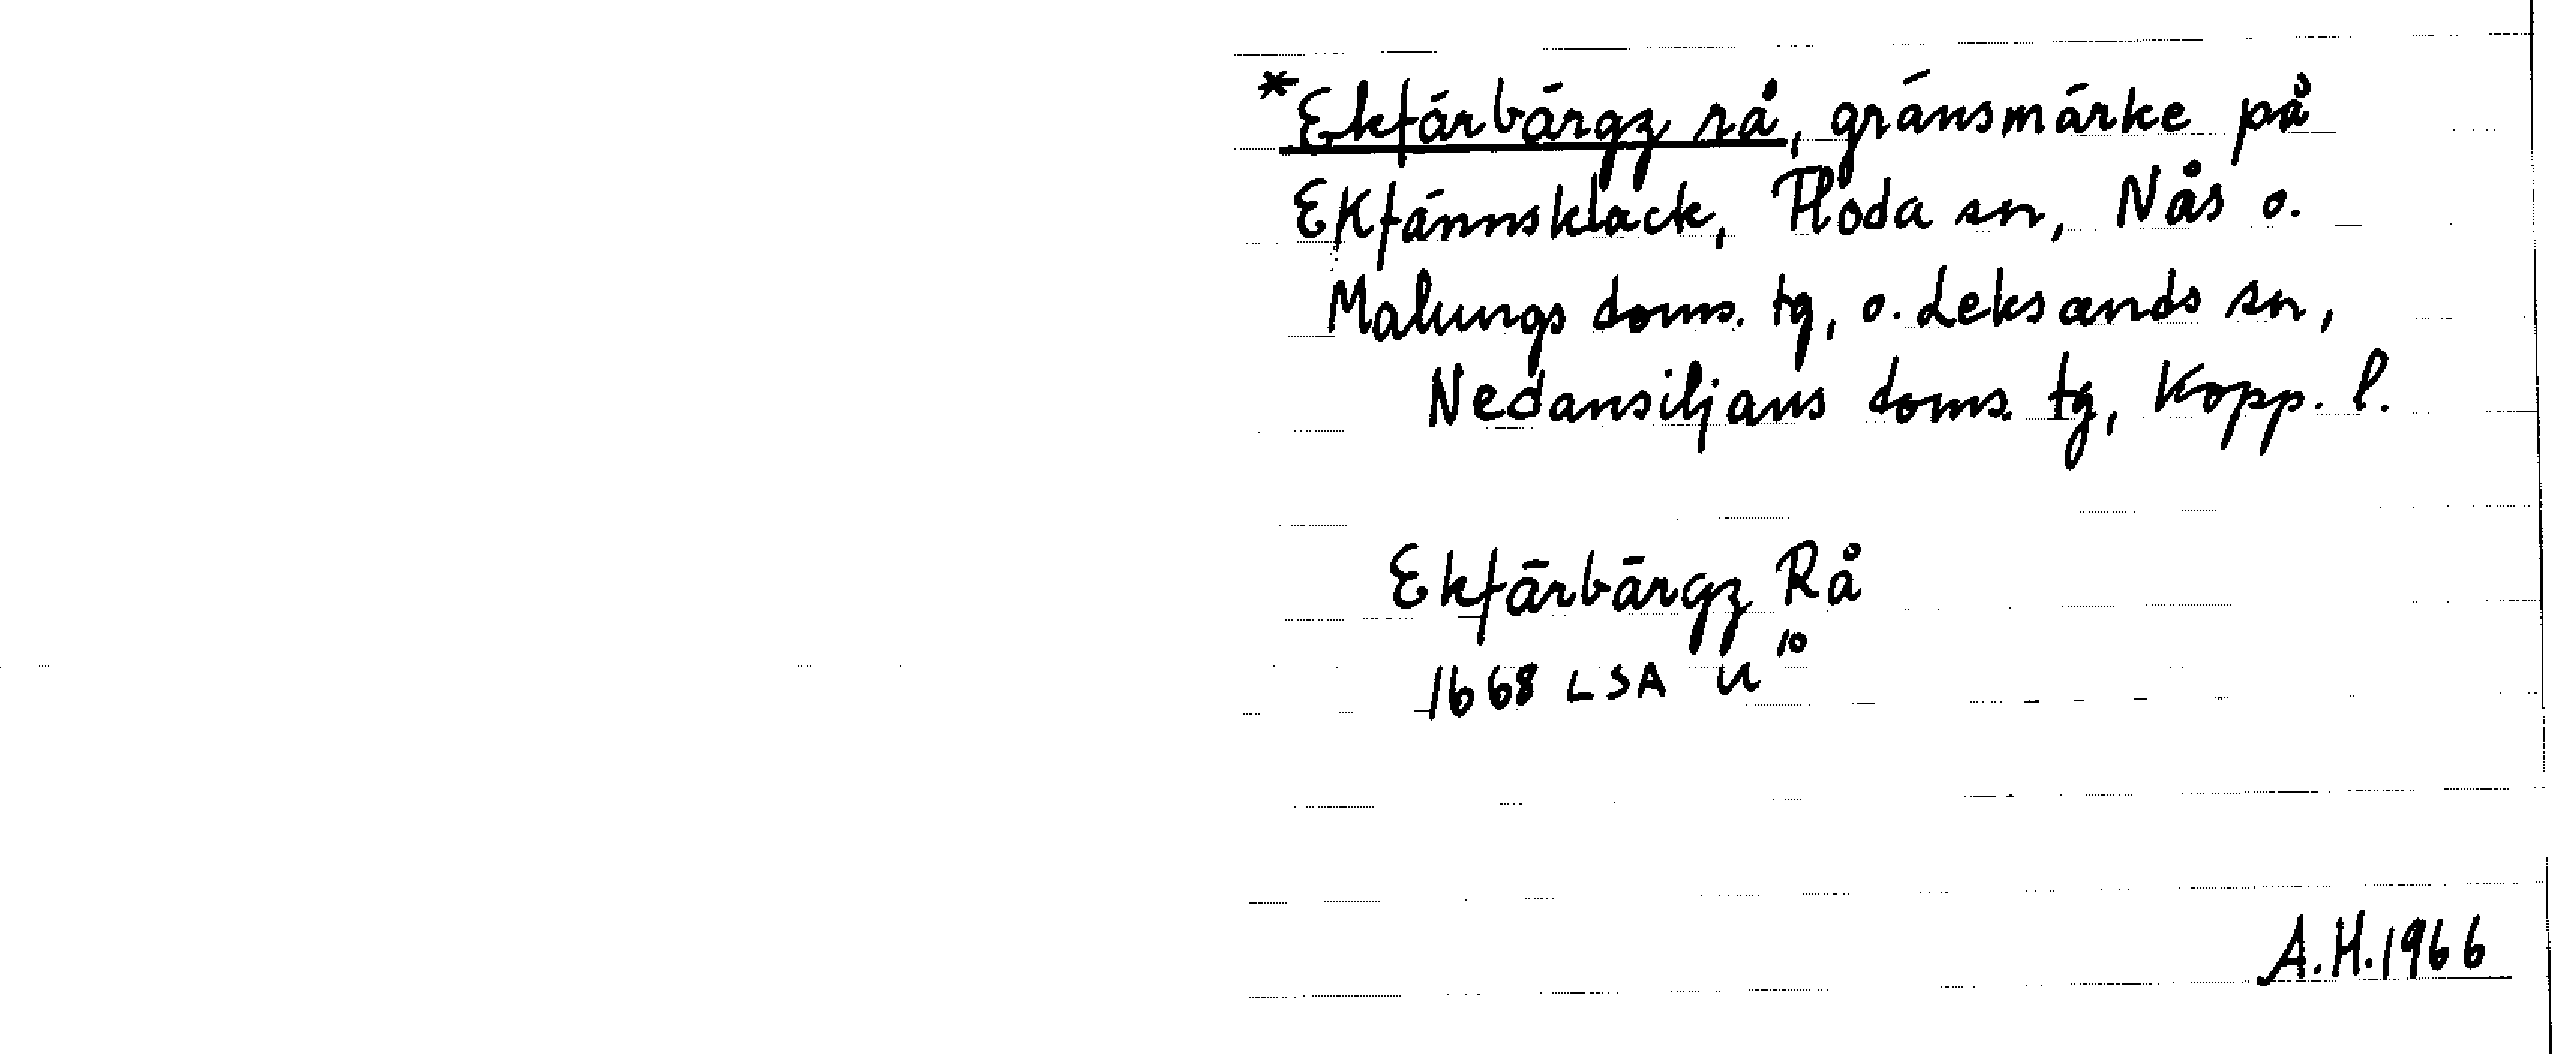 *Ekfärbärgz rå, gränsmärke på
Ekfännsklack, Floda sn, Nås o.
Malungs doms. tg, o. Leksands sn,
Nedansiljans doms. tg, Kopp. l.
Ekfärbärgz Rå
1668 LSA U 10
A.H.1966